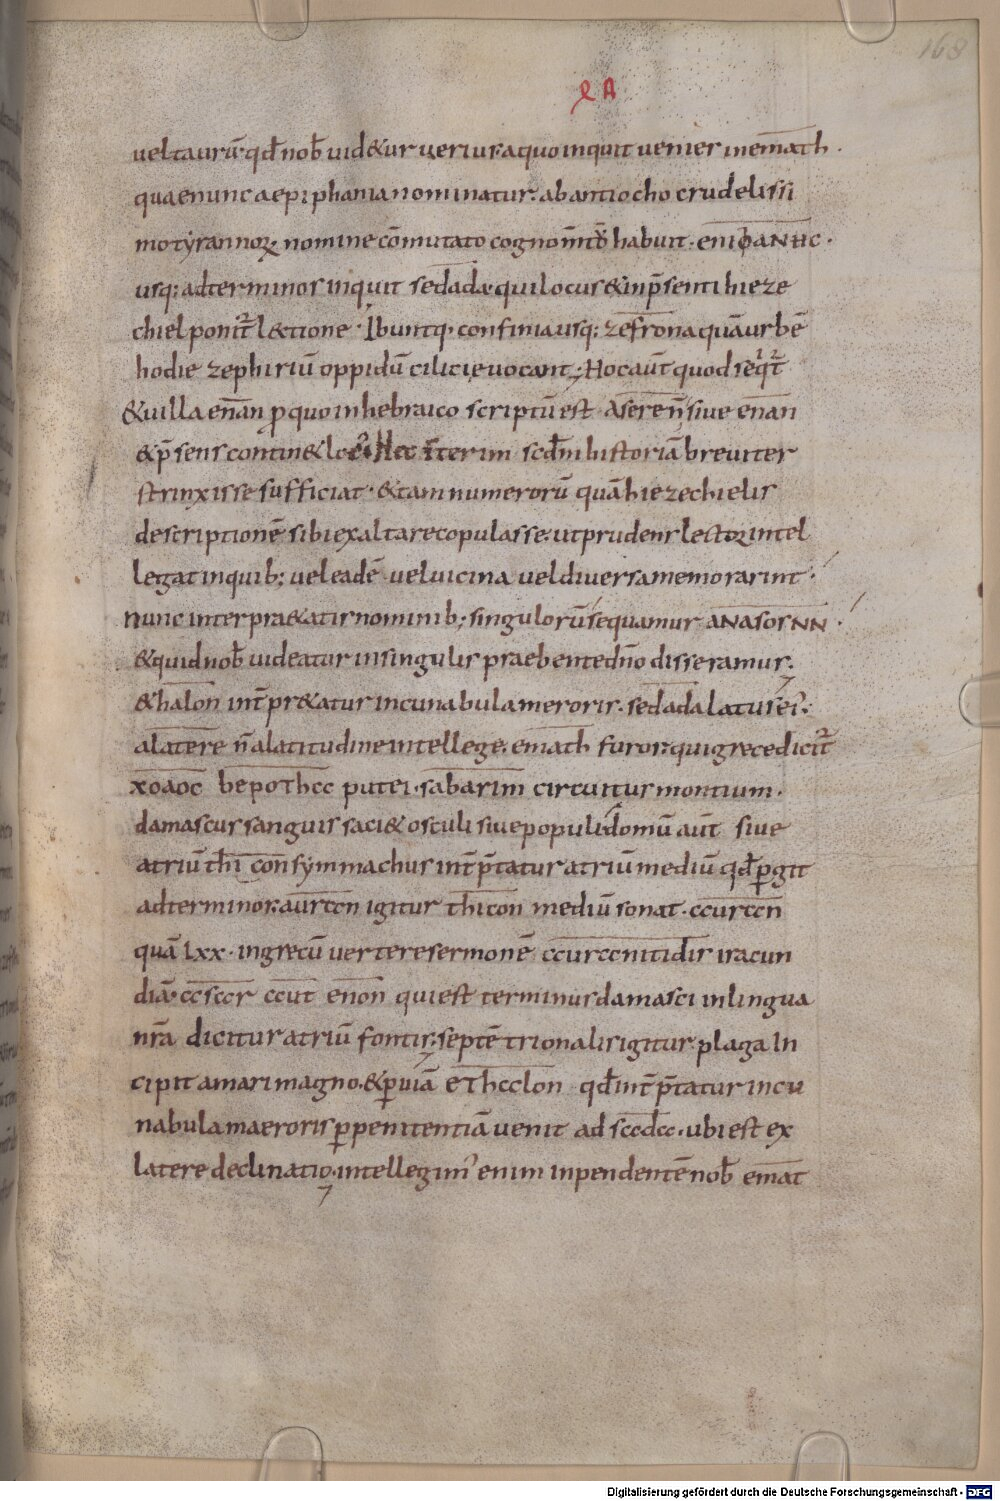 168
ueltaurū· qd̄ nob̄ uid&ur uerius· aquo inquit uenies inemath·
quaenunc aepiphania nominatur· abantiocho crudelissi
motyrannoꝝ nomine cōmutato cognom̄tū habuit· eniφaNHc·
usq; adterminos inquit sedada· quilocus &inp̄senti hieze
chiel ponit̄ l&ctione· Ibuntq· confiniausq; zefrona quāurbē
hodie zephiriū oppidū cilicie uocant; Hocaūt quod seqt̄
&uilla enan ꝓquo inhebraico scriptū est Aseren̄ siue enan
&p̄sens contin& loc Hec īterim scd̄m historiā breuiter
strinxisse sufficiat· &tam numerorū quā hiezechielis
descriptionē sibi exaltare copulasse· utprudens lectoꝛ intel
legat inquib; uel eadē uel uicina uel diuersa memorarint·
Nunc interpra&atis nominib; singulorū sequamur aNasosNN·
&quid nob̄ uideatur insingulis praebente dn̄o disseramus·
&halon int̄pr&atur incunabula meroris· sedada latus ei·
alatere n̄ alatitudine intellege· emath furor· qui grece dicit̄
xoaoc beroThcc putei· sabarim circuitus montium·
damascus sanguis saci &osculi siue populi· domū aūt siue
atriū thi con symmachus int̄p̄tatur atriū mediū qd̄ ꝑgit
adterminos· aurccn igitur thicon mediū sonat· ccurccn
quā lxx· ingrecū uertere sermonē ccurccnitidis iracun
diā· ccsccr ccut enon qui est terminus damasci inlingua
nr̄a dicitur atriū fontis· septētrionalis igitur plaga In
cipit amari magno· &ꝑuiā eThcclon qd̄ int̄p̄tatur incu
nabula maeroris ꝑpenitentiā uenit ad sccdcc· ubi est ex
latere declinatio· intellegim' enim inpendentē nob̄ emat
Digitalisierung gefördert durch die Deutsche Forschungsgemeinschaft - DFG